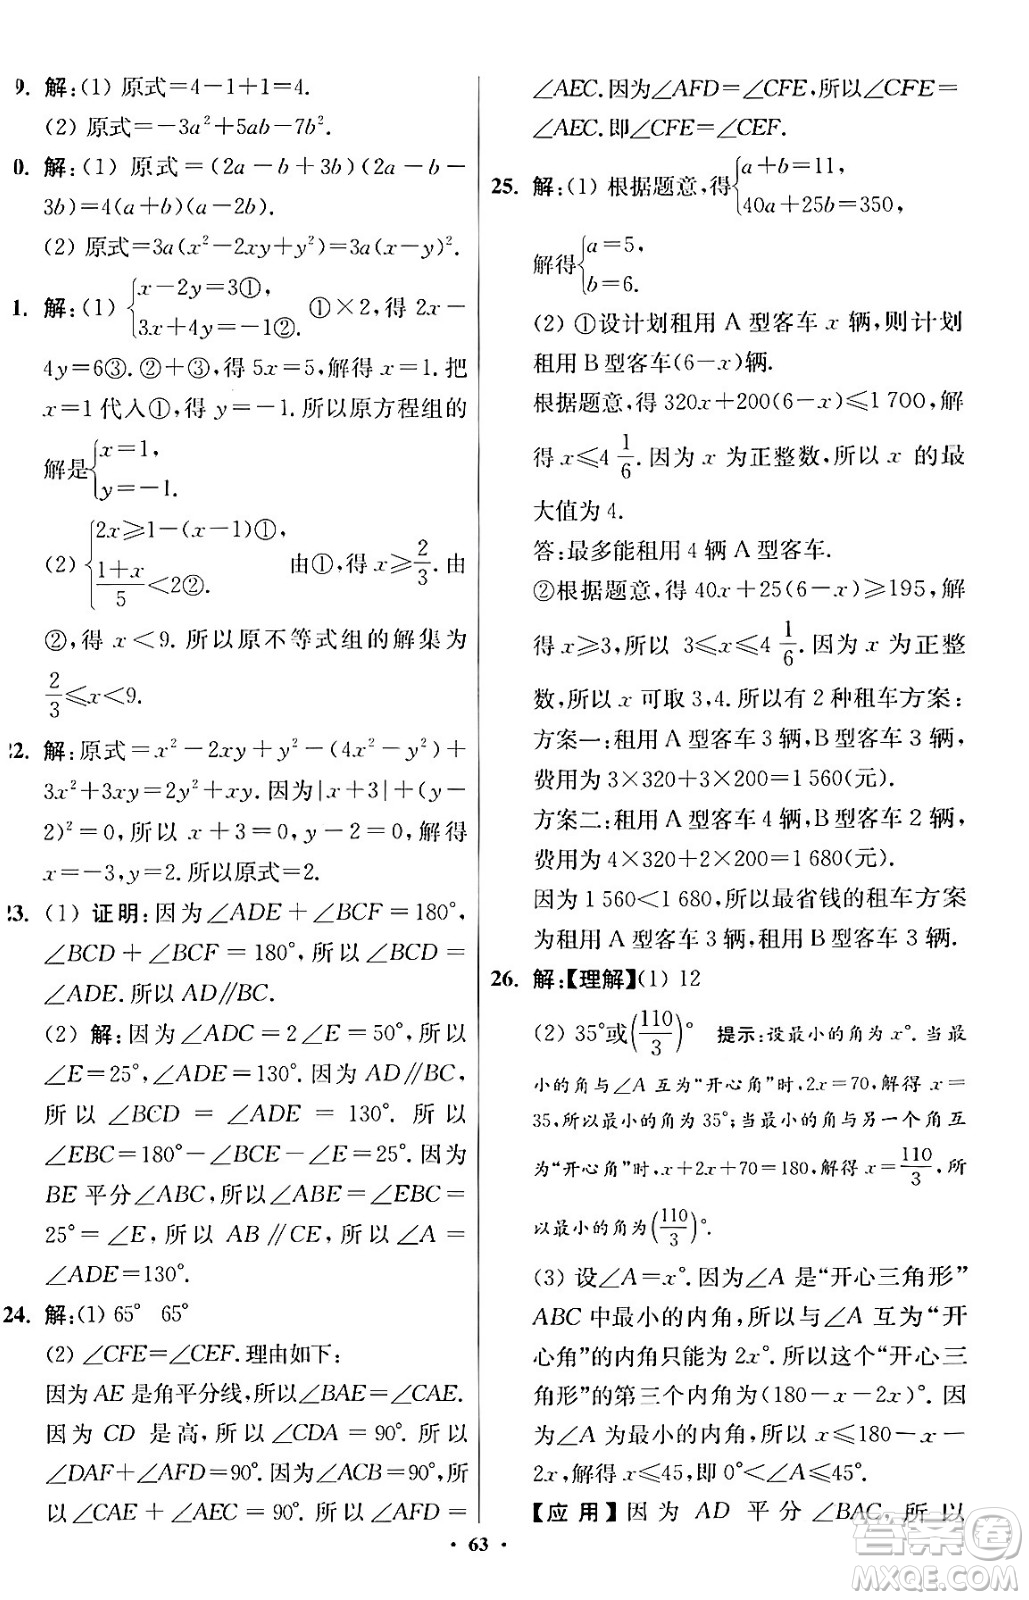 9. 解:(1) 原式=4-1+1=4.
(2) 原式=-3a²+5ab-7b².
0. 解:(1) 原式=(2a-b+3b)(2a-b-
3b)=4(a+b)(a-2b).
(2) 原式=3a(x²-2xy+y²)=3a(x-y)².
1. 解:(1) {x-2y=3①, 3x+4y=-1②. ①×2,得 2x-
4y=6③.②+③,得 5x=5,解得 x=1.把
x=1代入①,得 y=-1.所以原方程组的
解是{x=1, y=-1.
(2) {2x≥1-(x-1)①, (1+x)/5<2②. 由①,得 x≥2/3.由
②,得 x<9.所以原不等式组的解集为
2/3≤x<9.
22. 解:原式=x²-2xy+y²-(4x²-y²)+
3x²+3xy=2y²+xy.因为|x+3|+(y-
2)²=0,所以 x+3=0,y-2=0,解得
x=-3,y=2.所以原式=2.
23. (1) 证明:因为∠ADE+∠BCF=180°,
∠BCD+∠BCF=180°,所以∠BCD=
∠ADE.所以AD∥BC.
(2) 解:因为∠ADC=2∠E=50°,所以
∠E=25°,∠ADE=130°.因为AD∥BC,
所以∠BCD=∠ADE=130°.所以
∠EBC=180°-∠BCD-∠E=25°.因为
BE平分∠ABC,所以∠ABE=∠EBC=
25°=∠E,所以 AB∥CE,所以∠A=
∠ADE=130°.
24. 解:(1) 65° 65°
(2) ∠CFE=∠CEF.理由如下:
因为AE是角平分线,所以∠BAE=∠CAE.
因为 CD 是高,所以∠CDA=90°.所以
∠DAF+∠AFD=90°.因为∠ACB=90°,所
以∠CAE+∠AEC=90°,所以∠AFD=
∠AEC.因为∠AFD=∠CFE,所以∠CFE=
∠AEC.即∠CFE=∠CEF.
25. 解:(1) 根据题意,得{a+b=11, 40a+25b=350,
解得{a=5, b=6.
(2) ①设计划租用 A 型客车 x 辆,则计划
租用B型客车(6-x)辆.
根据题意,得 320x+200(6-x)≤1 700,解
得 x≤4 1/6.因为 x 为正整数,所以 x 的最
大值为 4.
答:最多能租用 4 辆 A 型客车.
②根据题意,得 40x+25(6-x)≥195,解
得x≥3,所以 3≤x≤4 1/6.因为 x 为正整
数,所以 x 可取 3,4.所以有 2 种租车方案:
方案一:租用 A 型客车 3 辆,B型客车 3 辆,
费用为 3×320+3×200=1 560(元).
方案二:租用 A 型客车 4 辆,B型客车 2 辆,
费用为 4×320+2×200=1 680(元).
因为 1 560<1 680,所以最省钱的租车方案
为租用 A 型客车 3 辆,租用 B 型客车 3 辆.
26. 解:【理解】(1) 12
(2) 35°或(110/3)° 提示:设最小的角为 x°.当最
小的角与∠A 互为“开心角”时,2x=70,解得 x=
35,所以最小的角为 35°;当最小的角与另一个角互
为“开心角”时,x+2x+70=180,解得 x=110/3,所
以最小的角为(110/3)°.
(3) 设∠A=x°.因为∠A 是“开心三角形”
ABC 中最小的内角,所以与∠A 互为“开
心角”的内角只能为 2x°.所以这个“开心三
角形”的第三个内角为(180-x-2x)°.因
为∠A 为最小的内角,所以 x≤180-x-
2x,解得x≤45,即 0°<∠A≤45°.
【应用】因为 AD 平分∠BAC,所以
· 63 ·
答案圈
MXQE.COM